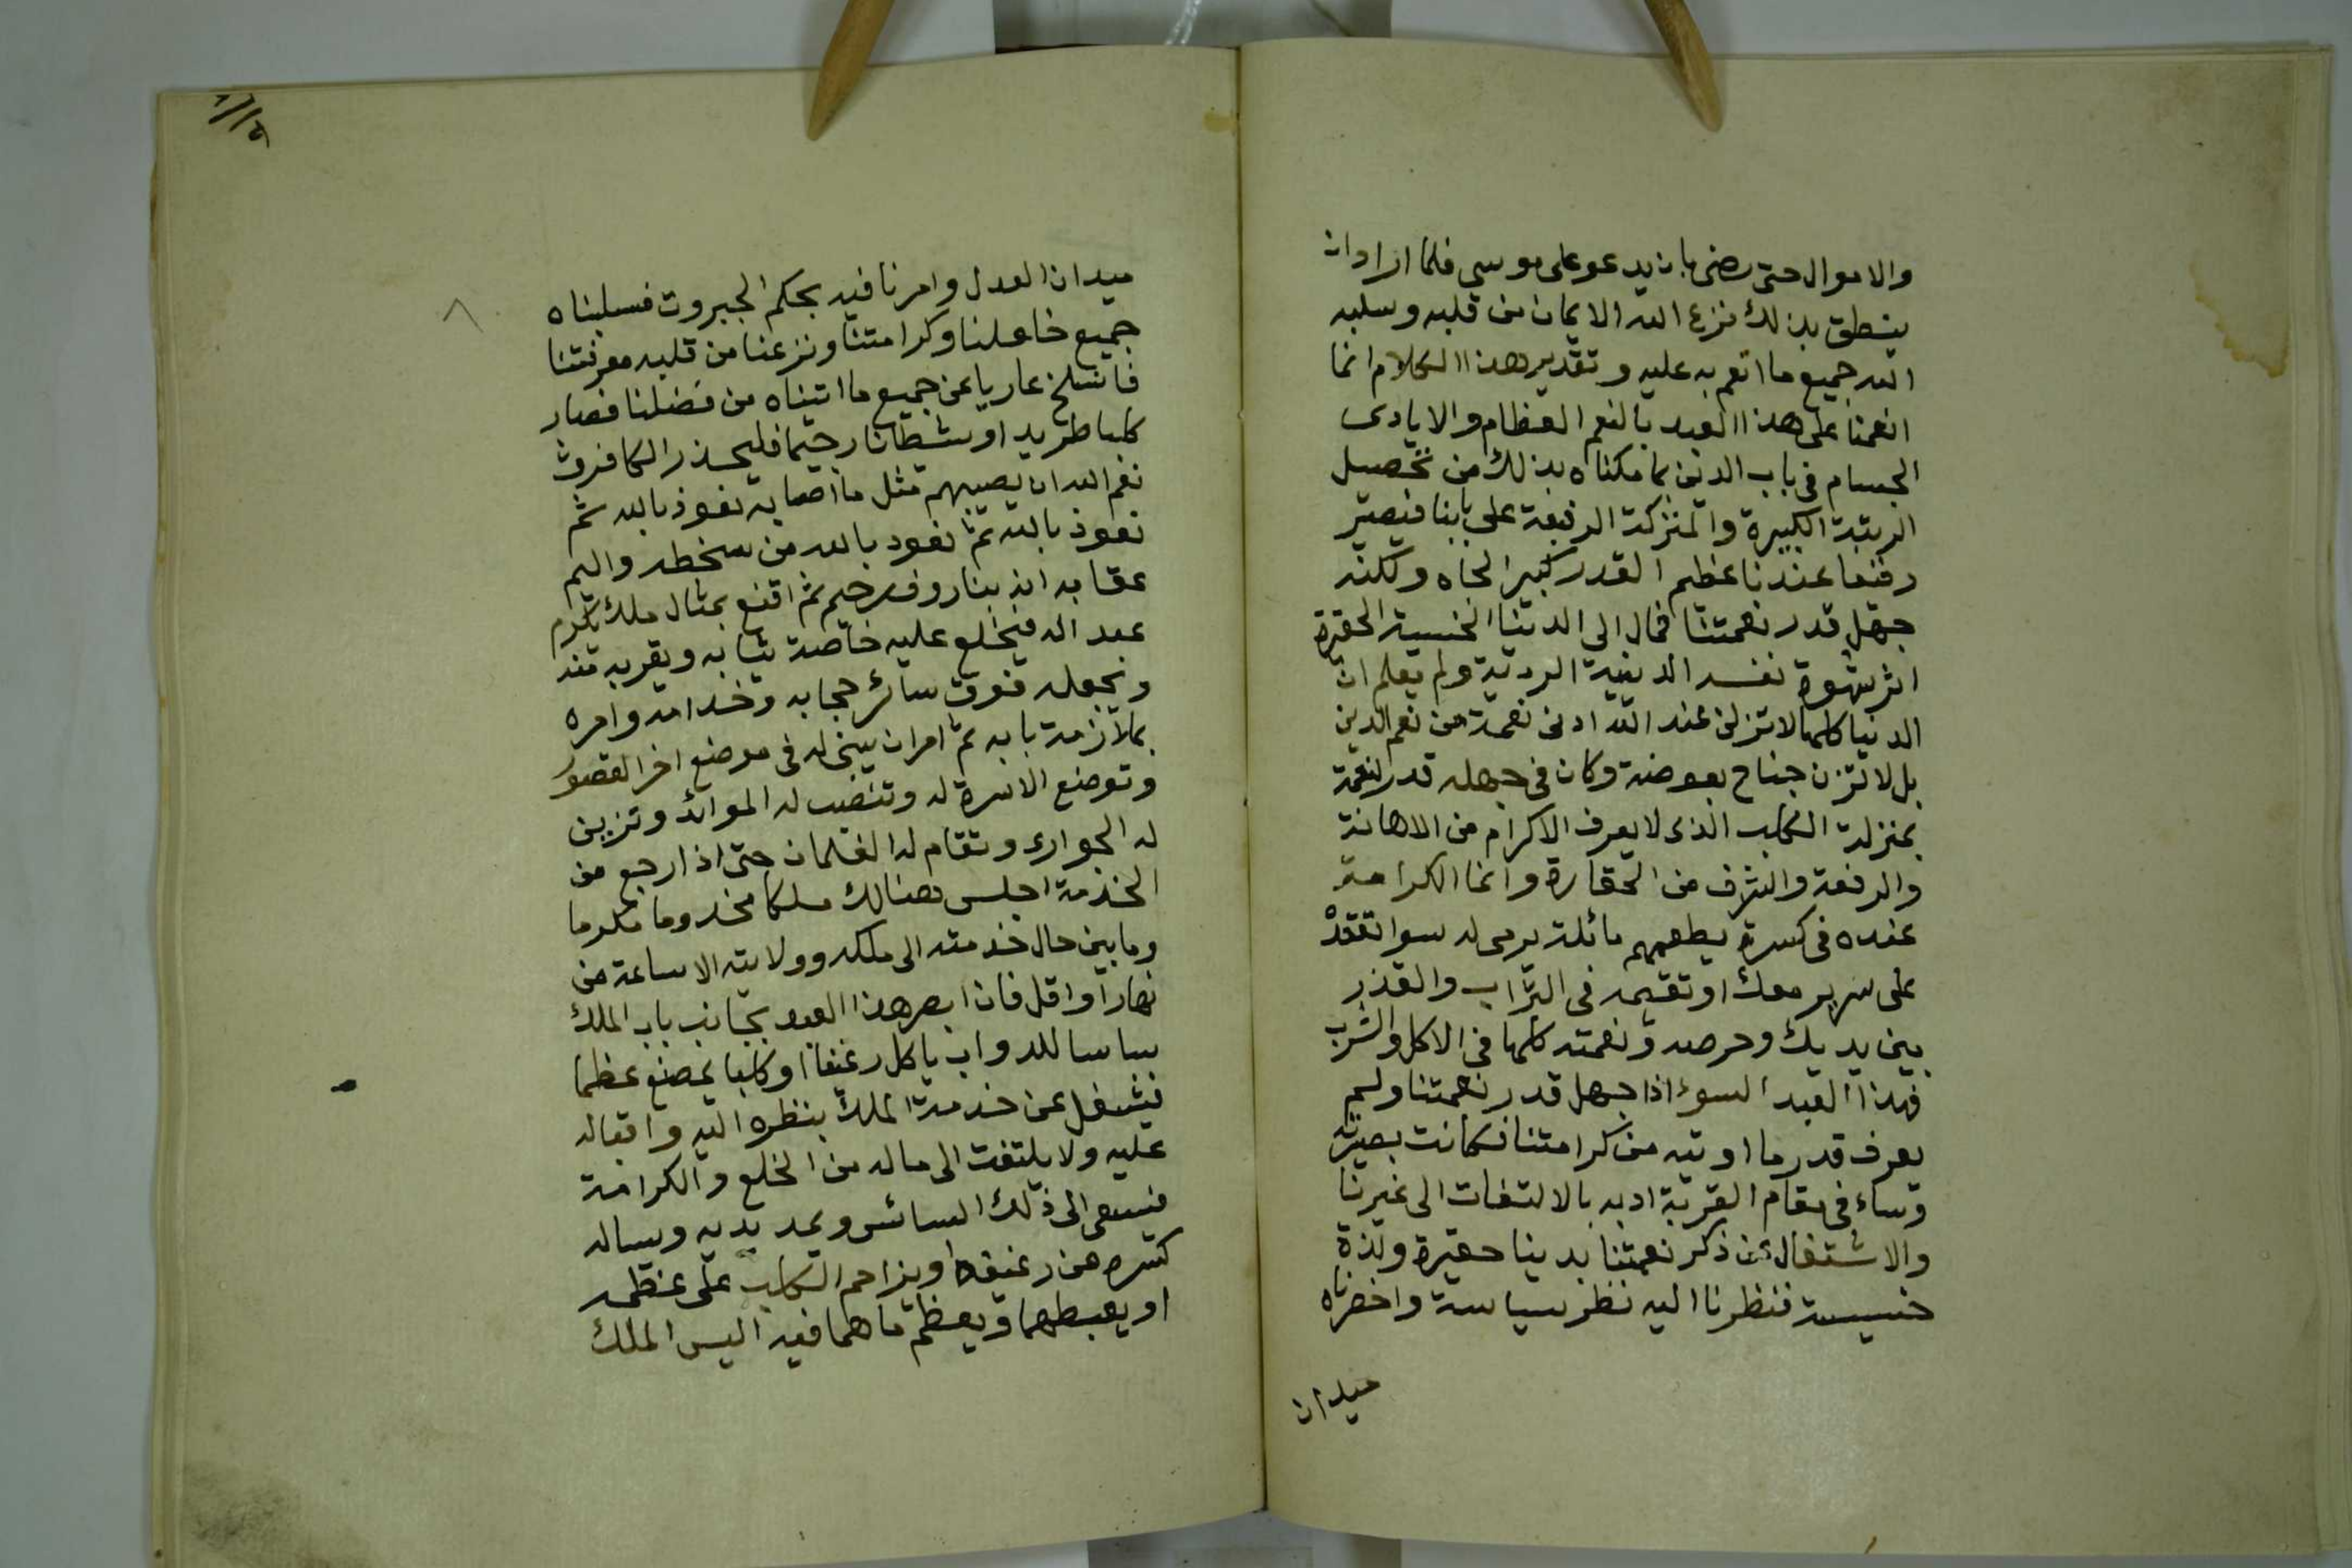 والاموال حتى رضى بان يدعو على موسى فلما اراد ان
ينطق بذلك نزع الله الايمان من قلبه وسلبه
الله جميع ما انعم به عليه وتقدير هذا الكلام انما
انعمنا على هذا العبد بالنعم العظام والايادى
الجسام فى باب الدين بما مكناه بذلك من تحصيل
الرتبة الكبيرة والمنزلة الرفيعة على بابنا فيصير
رفيعا عندنا عظيم القدر كبير الجاه ولكنه
جهل قدر نعمتنا فمال الى الدنيا الخسيسة الحقيرة
اثر شهوة نفسه الدنيية الردية ولم يعلم ان
الدنيا كلها لا تزن عند الله ادنى نعمة من نعم الدين
بل لا تزن جناح بعوضة وكان فى جهله قدر النعمة
بمنزلة الكلب الذى لا يعرف الاكرام من الاهانة
والرفعة والشرف من الحقارة وانما الكرامة
عنده فى كسرة يطعمهم مائلة يرمى له سوا تقعد
على سرير معك او تقيمه فى التراب والقذر
بين يديك وحرصه ونعمته كلها فى الاكل والشرب
فهذا العبد السوء اذا جهل قدر نعمتنا ولم
يعرف قدر ما اوتيه من كرامتنا فكانت بصيرته
وساء فى مقام القربة ادبه بالالتفات الى غيرنا
والاشتغال عن ذكر نعمتنا بدينا حقيرة ولذة
خسيسة فنظرنا اليه نظر سياسة واحضرناه
ميدان
ميدان العدل وامرنا فيه بحكم الجبروت فسلبناه
جميع خاعلنا وكرامتنا ونزعنا من قلبه معرفتنا
فانسلخ عاريا عن جميع ما اتيناه من فضلنا فصار
كلبا طريد او شيطانا رجيما فليحذر الكافرون
نعم الله ان يصيبهم مثل ما اصابه نعوذ بالله ثم
نعوذ بالله ثم نعود بالله من سخطه واليم
عقابه انه بنا روف رحيم ثم اقنع بمثال ملك يكرم
عبد اله فيخلع عليه خاصة ثيابه ويقربه منه
ونجعله فوق سائر حجابه وخدامه وامره
بملازمة بابه ثم امر ان يبنى له فى موضع اخر القصور
وتوضع الاسرة له وتنصب له الموائد وتزين
له الجوارى وتقام له الغلمان حتى اذا رجع من
الخدمة اجلس هنالك ملكا مخدوما مكرما
وما بين حال خدمته الى ملكه وولايته الا ساعة من
نهار او اقل فان ابصر هذا العبد بجانب باب الملك
ساسا للدواب ياكل رغيفا او كلبا يمضع عظما
فيشغل عن خدمة الملك بنظره اليه واقباله
عليه ولا يلتفت الى ماله من الخلع والكرامة
فيسعى الى ذلك السائس ويمد يديه وساله
كسره من رغيفه او يزاحم الكلب على عظمه
او يعبطهما ويعظم ما هما فيه اليس الملك